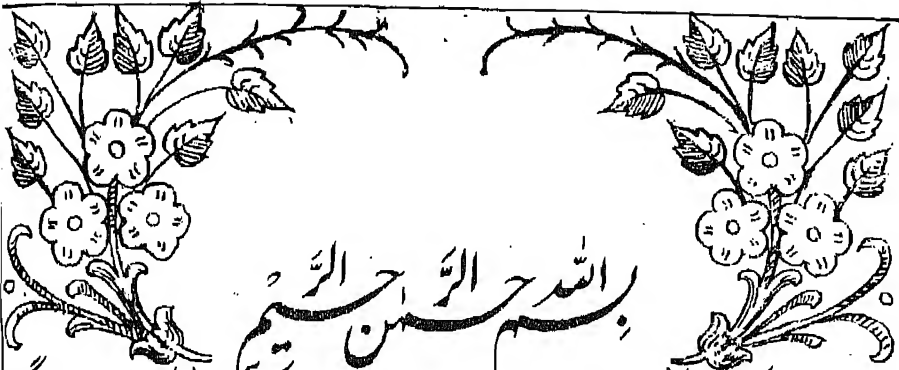 بِسم الله الرَّحمٰن الرَّحِيم